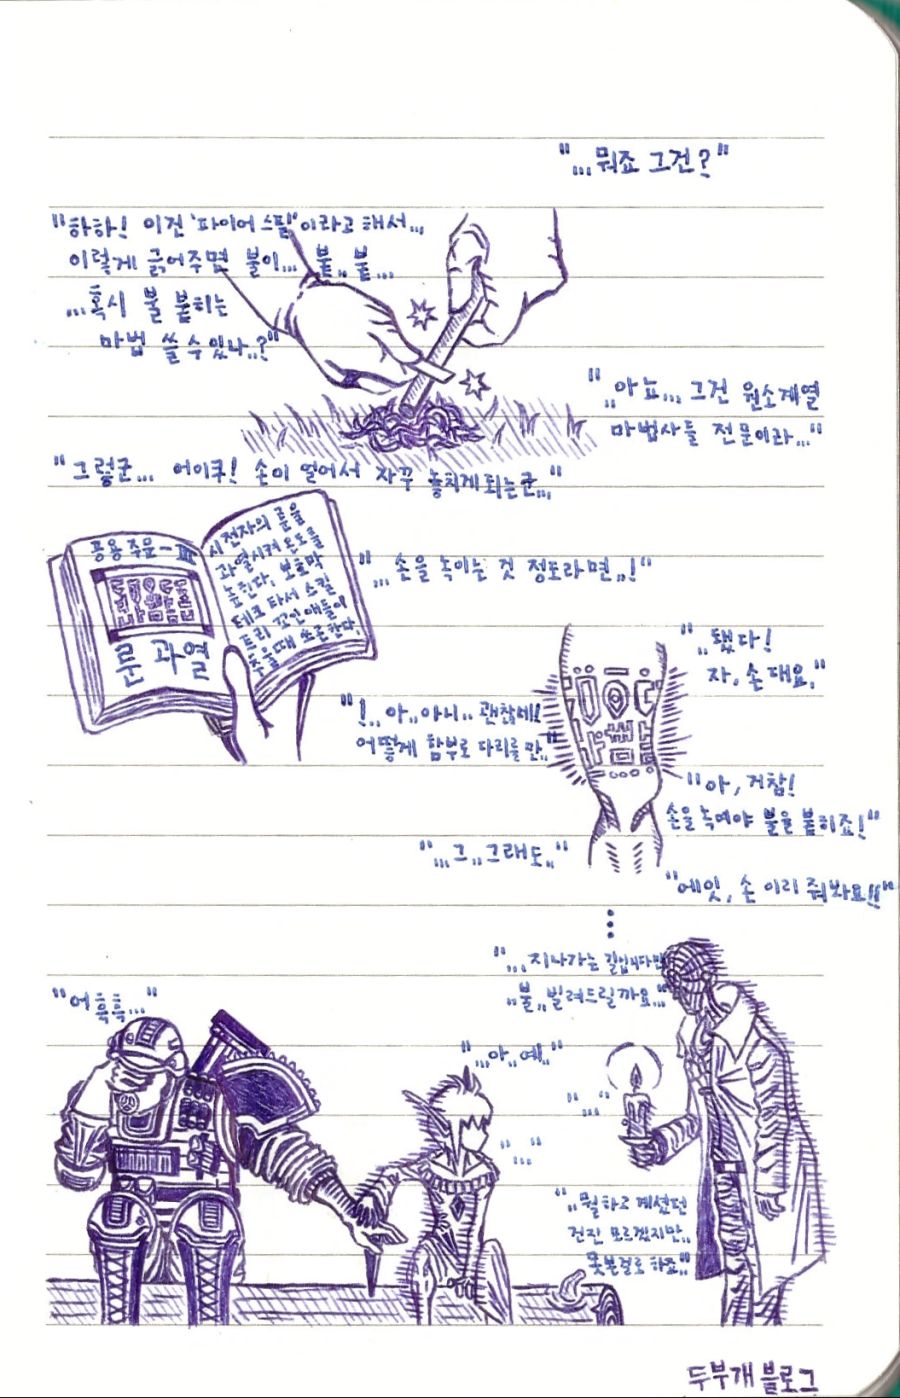 "...뭐죠 그건?"
"하하! 이건 '파이어스틸'이라고 해서...
이렇게 긁어주면 불이... 붙.. 붙...
...혹시 불 붙히는
마법 쓸 수 있나..?"
"..아뇨... 그건 원소계열
마법사들 전문이라..."
"그렇군... 어이쿠! 손이 얼어서 자꾸 놓치게되는군..."
공용주문-III
룬 과열
시전자의 룬을
과열시켜 온도를
높힌다. 보호막
테크 타서 스킬
트리 꼬인애들이
추울때 쓰곤한다.
"...손을 녹이는 것 정도라면..!"
"..됐다!
자, 손 대요."
"!..아..아니.. 괜찮네!!
어떻게 함부로 다리를 만.."
"아, 거참!
손을녹여야 불을 붙히죠!"
"...그..그래도.."
"에잇, 손 이리 줘봐요!!"
"...지나가는 길입니다만
..불..빌려드릴까요..."
"어흑흑..."
"...아..예.."
"..."
"..."
"..뭘하고 계셨던
건진 모르겠지만..
못본걸로 하죠.."
두부개 블로그